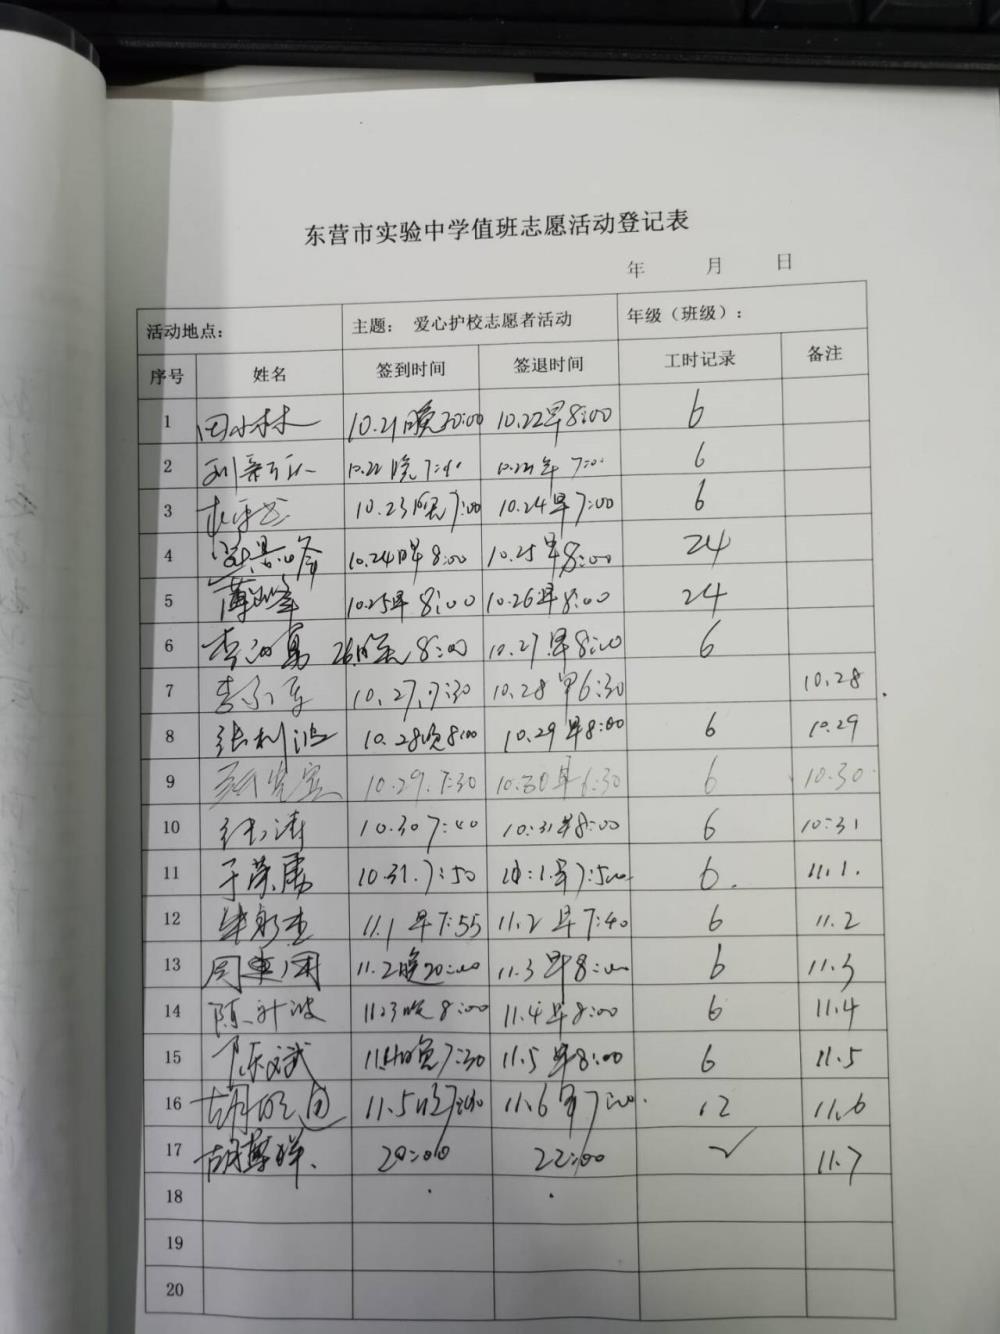 东营市实验中学值班志愿活动登记表
年 月 日
活动地点: 主题: 爱心护校志愿者活动 年级(班级):
序号 姓名 签到时间 签退时间 工时记录 备注
1 田林林 10.21晚20:00 10.22早8:00 6
2 10.22晚7:40 7:00 6
3 10.23晚7:00 10.24早7:00 6
4 10.24早8:00 10.25早8:00 24
5 10.25早8:00 10.26早8:00 24
6 26晚8:00 10.27早8:00 6
7 10.27.7:30 10.28早6:30 10.28
8 张利波 10.28晚8:00 10.29早8:00 6 10.29
9 10.29.7:30 10.30早6:30 6 10.30
10 10.30 7:40 10:31早8:00 6 10:31
11 于荣 10.31.7:50 早7:50 6. 11.1.
12 11.1早7:55 11.2早7:40 6 11.2
13 周 11.2晚20:00 11.3早8:00 6 11.3
14 陈 波 11.3晚8:00 11.4早8:00 6 11.4
15 陈斌 11.4晚7:30 11.5早8:00 6 11.5
16 胡 11.5晚 11.6早7:00. 12 11.6
17 胡 祥. 20:00 22:00 ✓ 11.7
18
19
20